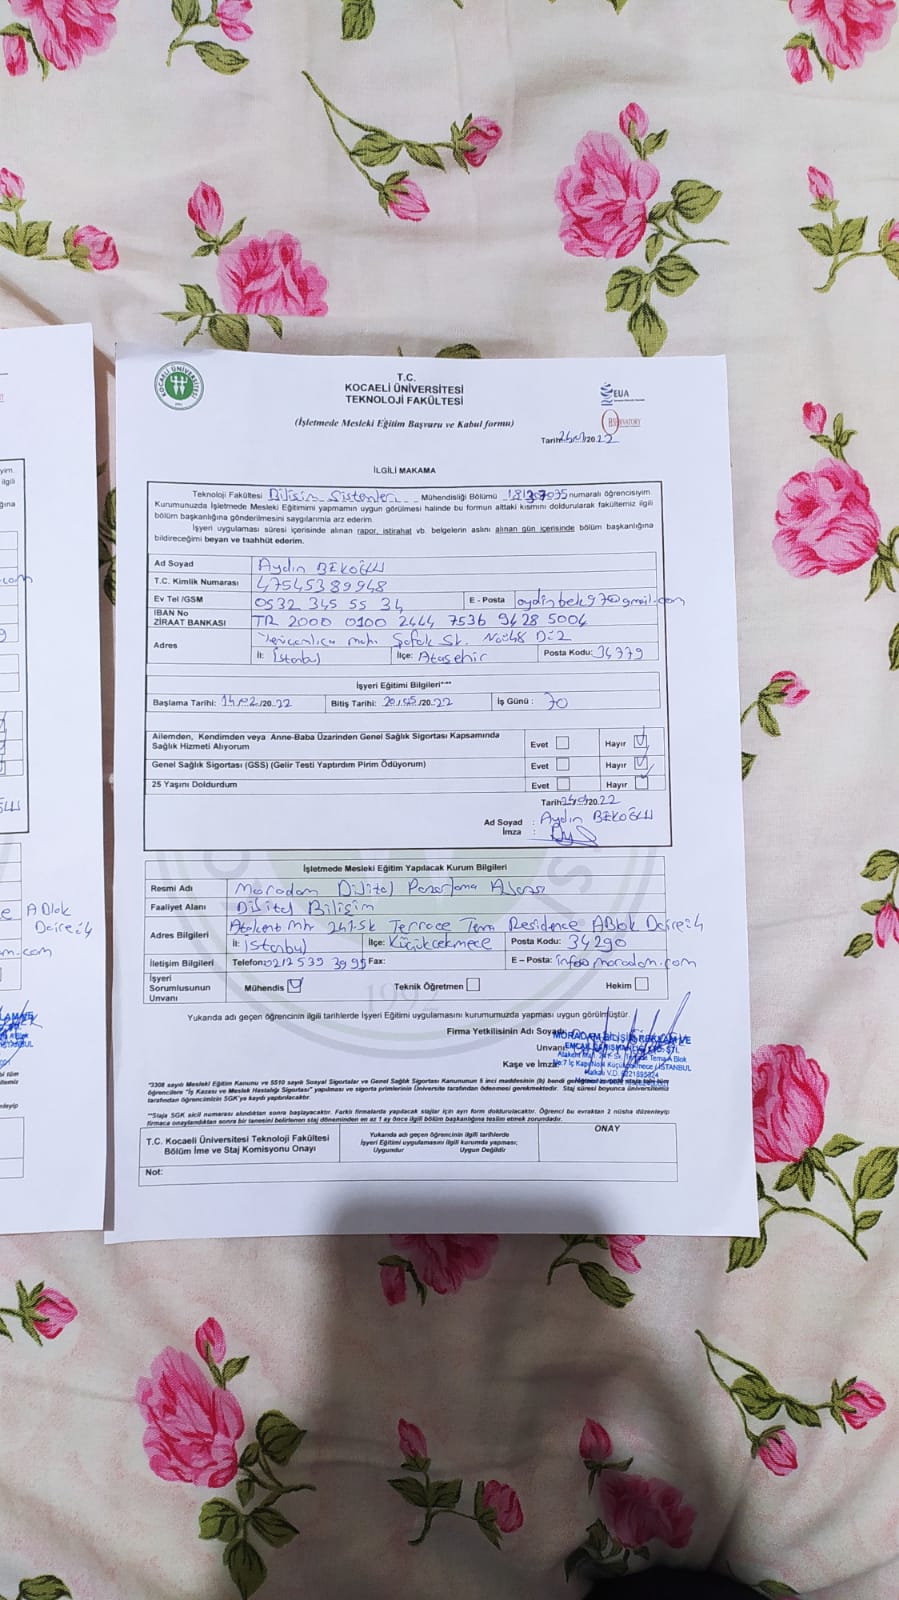 T.C.
KOCAELİ ÜNİVERSİTESİ
TEKNOLOJİ FAKÜLTESİ
(İşletmede Mesleki Eğitim Başvuru ve Kabul formu)
KOCAELİ ÜNİVERSİTESİ
EUA
Tarih: /20.22
İLGİLİ MAKAMA
Teknoloji Fakültesi Bilişim Sistemleri Mühendisliği Bölümü numaralı öğrencisiyim.
Kurumunuzda İşletmede Mesleki Eğitimimi yapmamın uygun görülmesi halinde bu formun alttaki kısmını doldurularak fakülteniz ilgili
bölüm başkanlığına gönderilmesini saygılarımla arz ederim.
İşyeri uygulaması süresi içerisinde alınan rapor, istirahat vb. belgelerin aslını alınan gün içerisinde bölüm başkanlığına
bildireceğimi beyan ve taahhüt ederim.
Ad Soyad Aydın BEKOĞLU
T.C. Kimlik Numarası 47545389948
Ev Tel /GSM 0532 345 55 34 E - Posta aydinbek97@gmail.com
IBAN No
ZİRAAT BANKASI TR 2000 0100 2444 7536 9428 5004
Adres Yenicamlıca mah. Şafak Sk. No:48 D:2
İl: İstanbul İlçe: Ataşehir Posta Kodu: 34779
İşyeri Eğitimi Bilgileri***
Başlama Tarihi: 14.02./20.22 Bitiş Tarihi: 20/05/20.22 İş Günü : 70
Ailemden, Kendimden veya Anne-Baba Üzerinden Genel Sağlık Sigortası Kapsamında
Sağlık Hizmeti Alıyorum Evet Hayır
Genel Sağlık Sigortası (GSS) (Gelir Testi Yaptırdım Pirim Ödüyorum) Evet Hayır
25 Yaşını Doldurdum Evet Hayır
Tarih /20.22
Ad Soyad : Aydın BEKOĞLU
İmza :
İşletmede Mesleki Eğitim Yapılacak Kurum Bilgileri
Resmi Adı Moradam Dijital Pazarlama Ajansı
Faaliyet Alanı Dijital Bilişim
Adres Bilgileri Atakent Mh 241.Sk Terrace Tema Residence ABlok Daire:4
İl: İstanbul İlçe: Küçükçekmece Posta Kodu: 34290
İletişim Bilgileri Telefon:0212 539 39 95 Fax: E – Posta: info@moradam.com
İşyeri
Sorumlusunun
Unvanı
Mühendis Teknik Öğretmen Hekim
Yukarıda adı geçen öğrencinin ilgili tarihlerde İşyeri Eğitimi uygulamasını kurumumuzda yapması uygun görülmüştür.
Firma Yetkilisinin Adı Soyadı
Unvanı
Kaşe ve İmza:
MORADAM BİLİŞİM REKLAM VE
*3308 sayılı Mesleki Eğitim Kanunu ve 5510 sayılı Sosyal Sigortalar ve Genel Sağlık Sigortası Kanununun 5 inci maddesinin (b) bendi gereğince
öğrencilere "İş Kazası ve Meslek Hastalığı Sigortası" yapılması ve sigorta primlerinin Üniversite tarafından ödenmesi gerekmektedir. Staj süresi boyunca üniversitemiz
tarafından öğrencimizin SGK'ya kaydı yapılacaktır.
**Staja SGK sicil numarası alındıktan sonra başlayacaktır. Farklı firmalarda yapılacak stajlar için ayrı form doldurulacaktır. Öğrenci bu evraktan 2 nüsha düzenleyip
firmaca onaylandıktan sonra bir tanesini belirlenen staj döneminden en az 1 ay önce ilgili bölüm başkanlığına teslim etmek zorundadır.
T.C. Kocaeli Üniversitesi Teknoloji Fakültesi
Bölüm İme ve Staj Komisyonu Onayı
Yukarıda adı geçen öğrencinin ilgili tarihlerde
İşyeri Eğitimi uygulamasını ilgili kurumda yapması,
Uygundur Uygun Değildir
ONAY
Not: